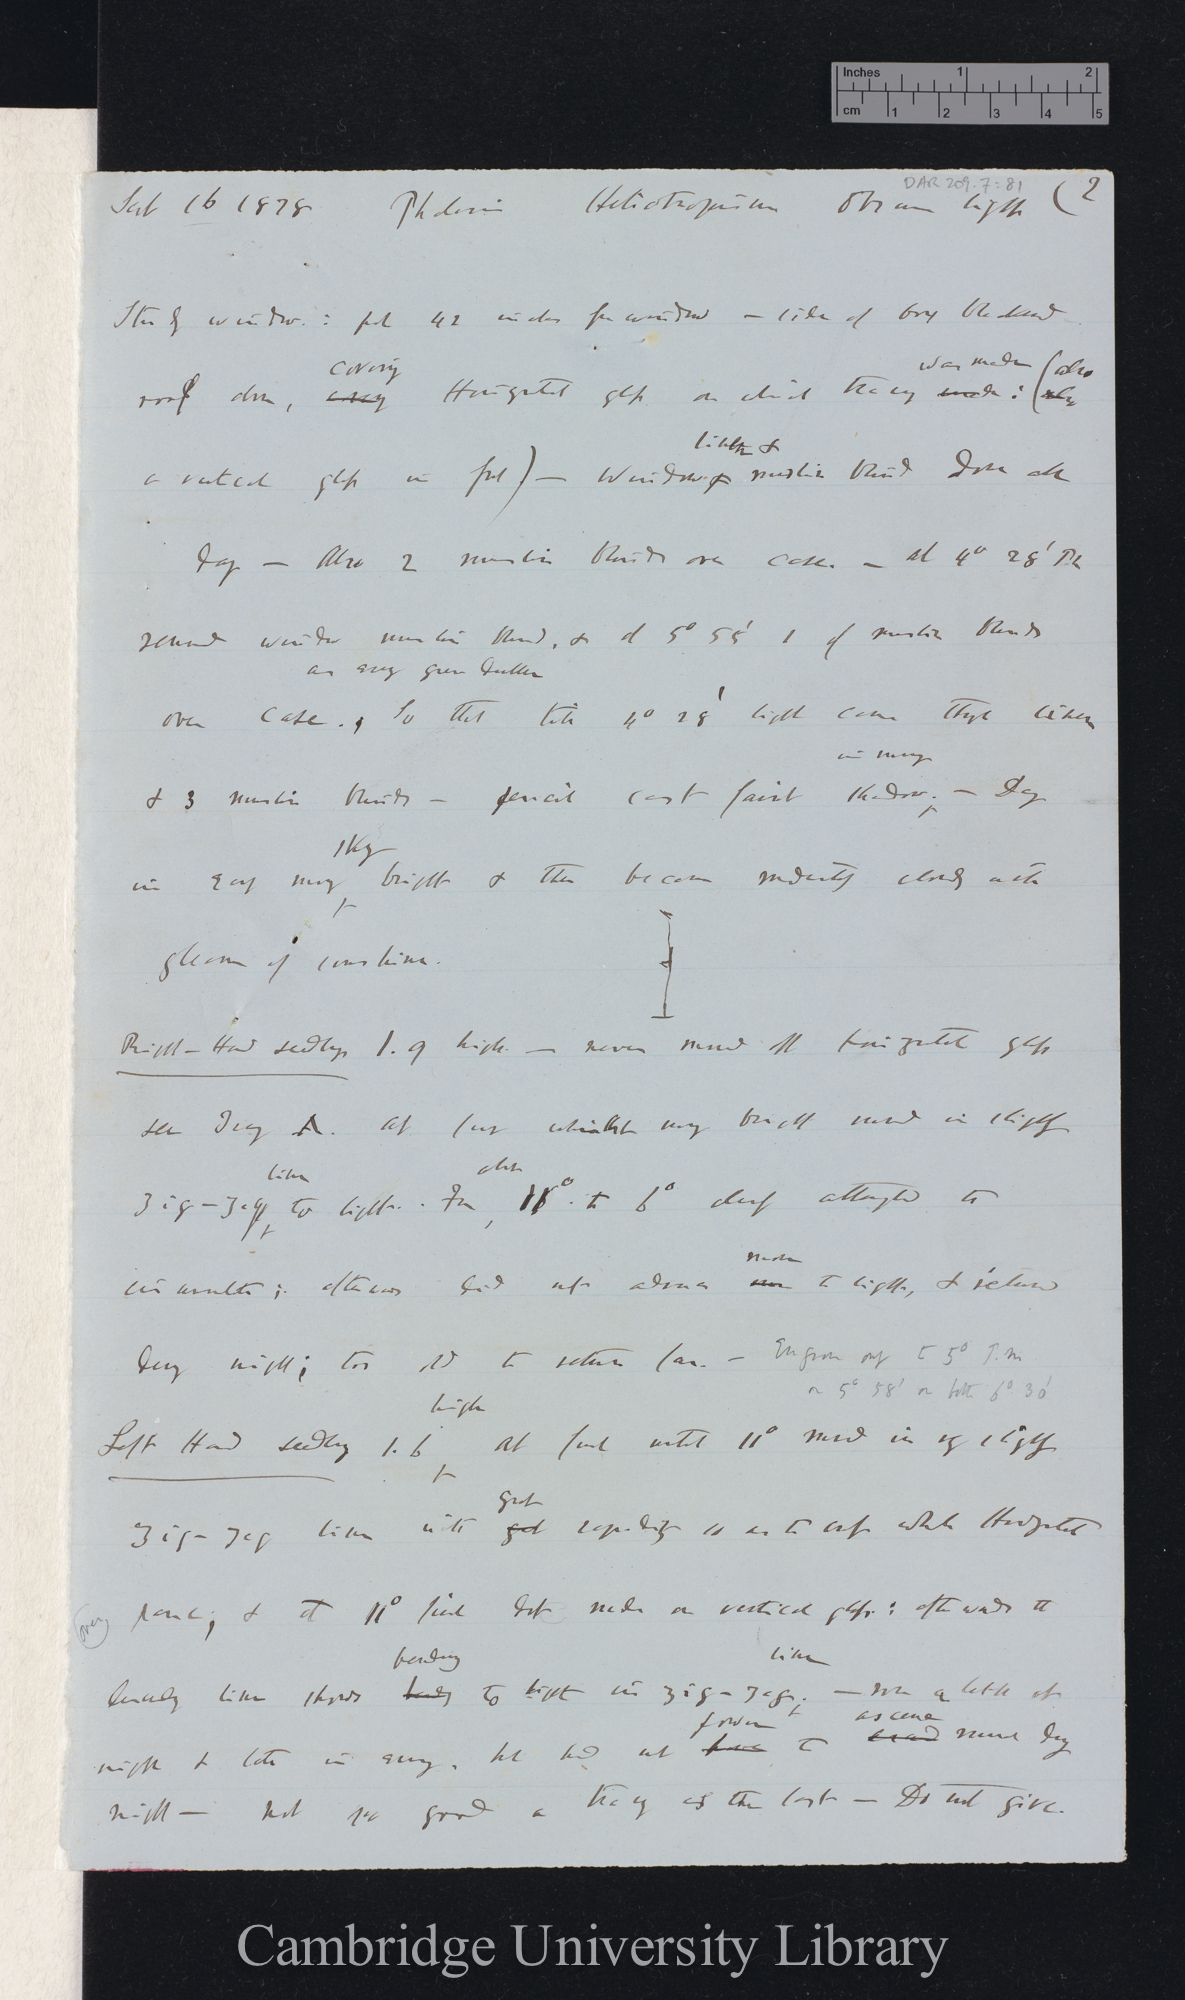 Inches 1 2
cm 1 2 3 4 5
DAR 209.7:81
Sept 16 1878 Phalaris Heliotropism Obscure light (2
Study window: pot 42 inches from window — sides of box blackened
covering was made (also
roof down, Horizontal glass on which tracing made:
a vertical glass in front) — Window muslin blind down all
linen &
day — Also 2 muslin blinds over case. — at 4° 28' PM
removed window muslin blind, & at 5° 58' 1 of muslin blinds
as evg grew duller
over case., So that till 4° 28' light came through linen
in morng
& 3 muslin blinds — pencil cast faint shadow. — Day
sky
in early morng bright & then became moderately cloudy with
gleams of sunshine.
Right-Hand seedling 1.9 high. — never moved off horizontal glass
see Diag A. At first whilst morng bright moved in slightly
line
zig-zag to light. From 11° to 6° clearly attempted to
circumnutate; afterwards did not advance more to light, & returned
during night; too old to return far. — Engrave only to 5° P.m
or 5° 58' or both 6° 30'
high
Left Hand seedling 1.6 At first until 11° moved in very slightly
great
zig-zag line with rapidity so as to cross whole Horizontal
over
pane; & at 11° first dots made on vertical glass: afterwards the
bending line
line shows to light in zig-zag; — rose a little at
fower ascend
night & late in evng. but did not to much during
night — Not so good a tracing as the last — Do not give.
Cambridge University Library